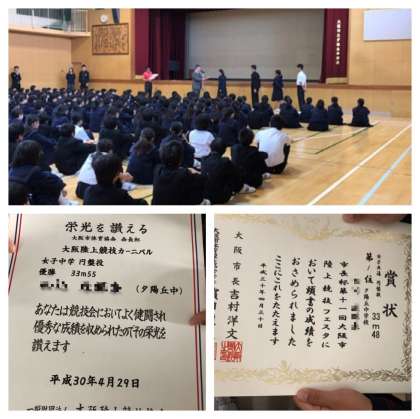 栄光を讃える
大阪市体育協会 会長杯
大阪陸上競技カーニバル
女子中学 円盤投
優勝 33m55
(夕陽丘中)
あなたは競技会においてよく健闘され
優秀な成績を収められたのでその栄光を
讃えます
平成30年4月29日
賞状
女子共通 円盤投 33m48
第1位 夕陽丘中学校
市長杯第十一回大阪市
陸上競技フェスタに
おいて頭書の成績を
おさめられました
ここにこれをたたえます
平成三十年四月三十日
大阪市長 吉村洋文